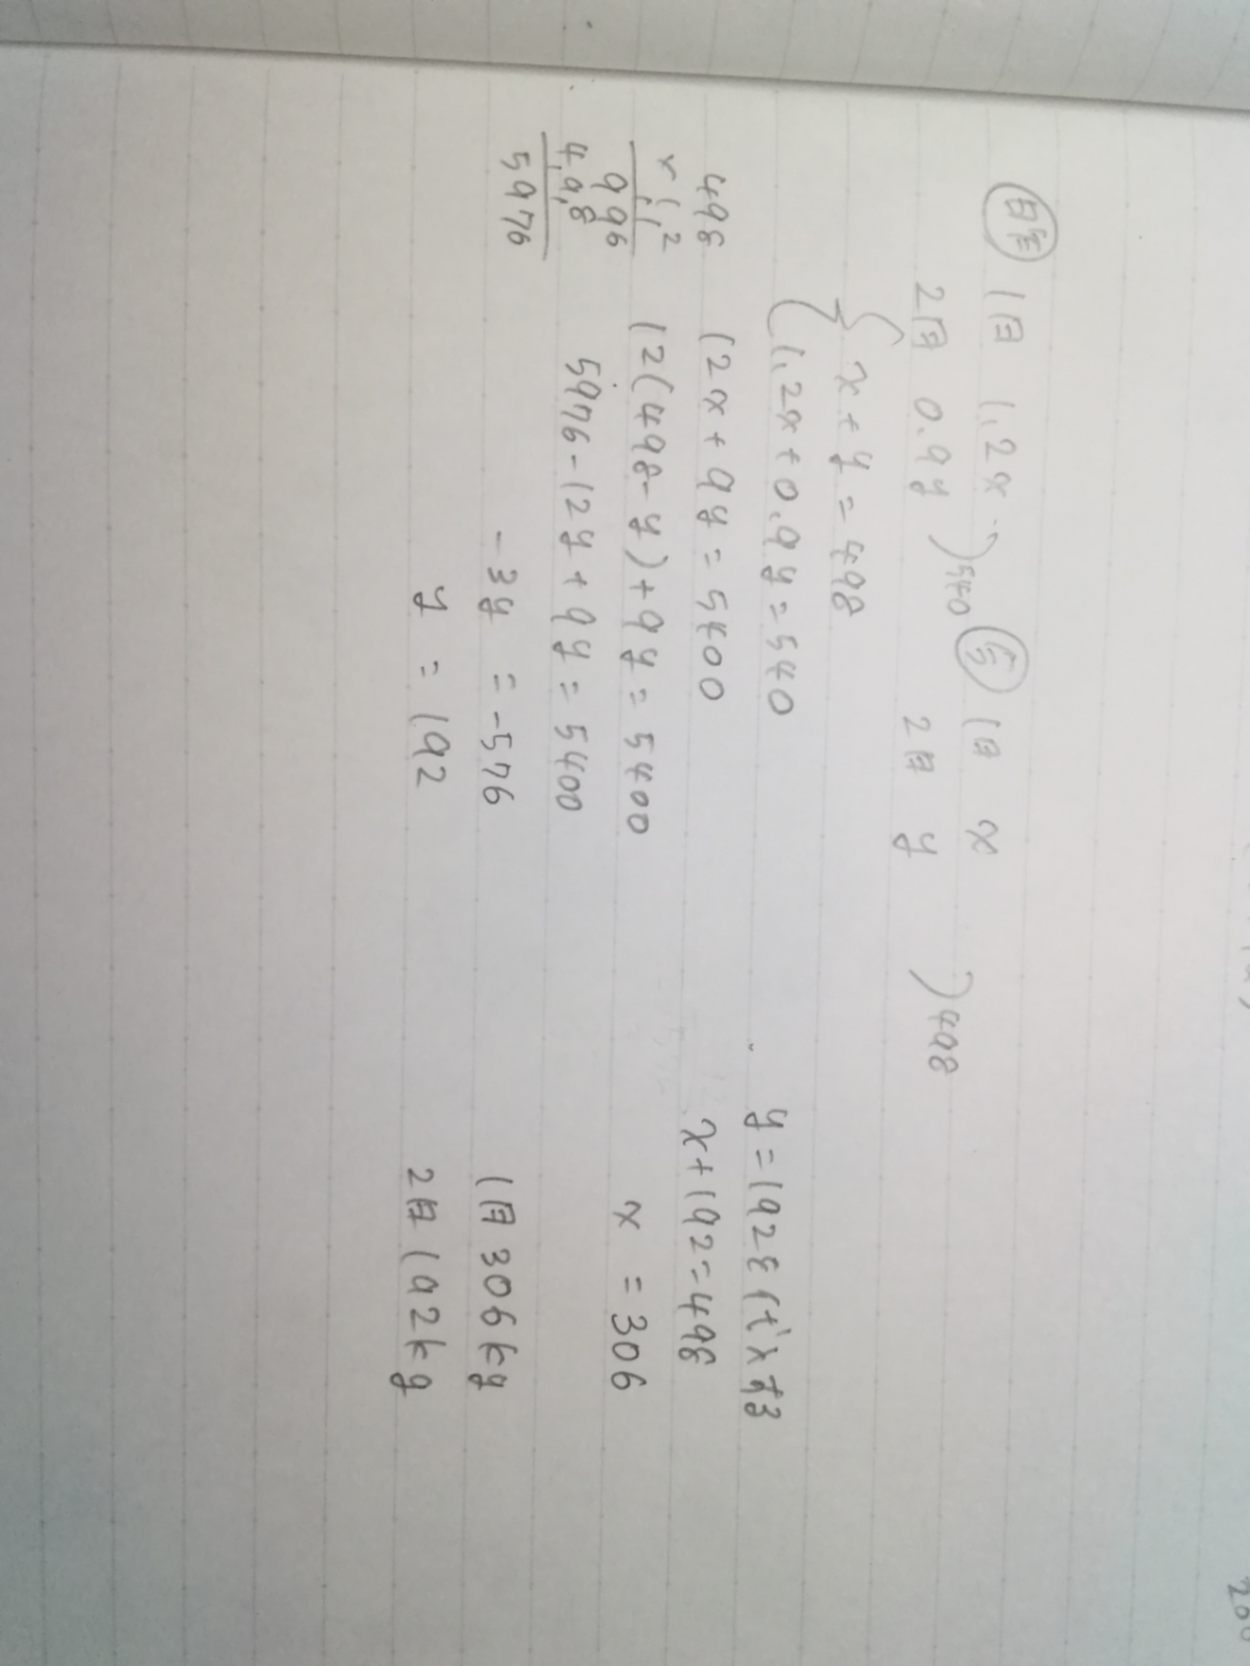 昨年 1日 1.2x
2日 0.9y )540
今 1日 x
2日 y )498
x+y=498
1.2x+0.9y=540
12x+9y=5400
12(498-y)+9y=5400
5976-12y+9y=5400
-3y=-576
y=192
498
×12
996
498
5976
y=192を代入する
x+192=498
x=306
1日 306kg
2日 192kg